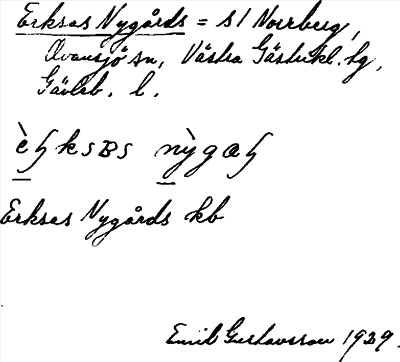 Erksas Nygårds = s/ Norrberg,
Ovansjö sn, Västra Gästrikl. tg,
Gävleb. l.
Erksas Nygårds kb
Emil Gustavsson 1929.